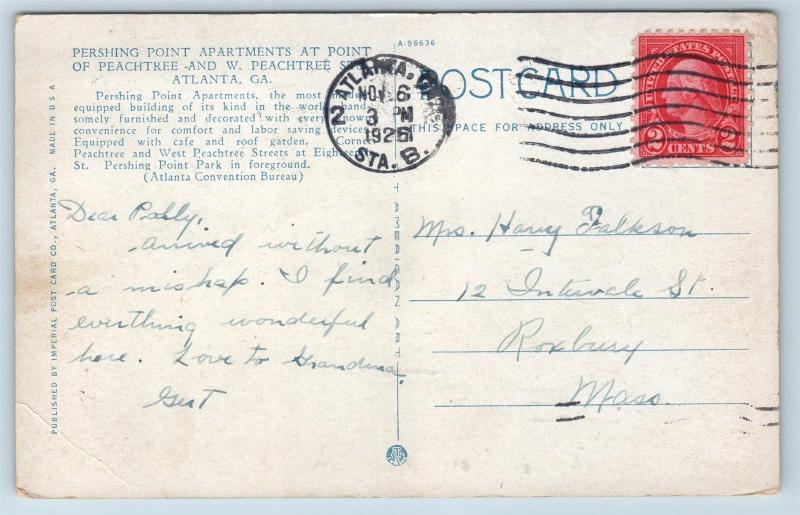 PERSHING POINT APARTMENTS AT POINT
OF PEACHTREE AND W. PEACHTREE
ATLANTA, GA.
Pershing Point Apartments, the most
equipped building of its kind in the world, hand-
somely furnished and decorated with every
convenience for comfort and labor saving devices.
Equipped with cafe and roof garden. Corner
Peachtree and West Peachtree Streets at
St. Pershing Point Park in foreground.
(Atlanta Convention Bureau)
A-96636
POST CARD
THIS SPACE FOR ADDRESS ONLY
ATLANTA, GA.
2
NOV 6
3 PM
192
STA. B.
UNITED STATES POSTAGE
2 CENTS 2
PUBLISHED BY IMPERIAL POST CARD CO., ATLANTA, GA. MADE IN U S A
Dear Polly,
arrived without
a mishap. I find
everthing wonderful
here. Love to Grandma.
Gert
Mrs. Harry Falkson
12 Intervale St.
Roxbury
Mass.